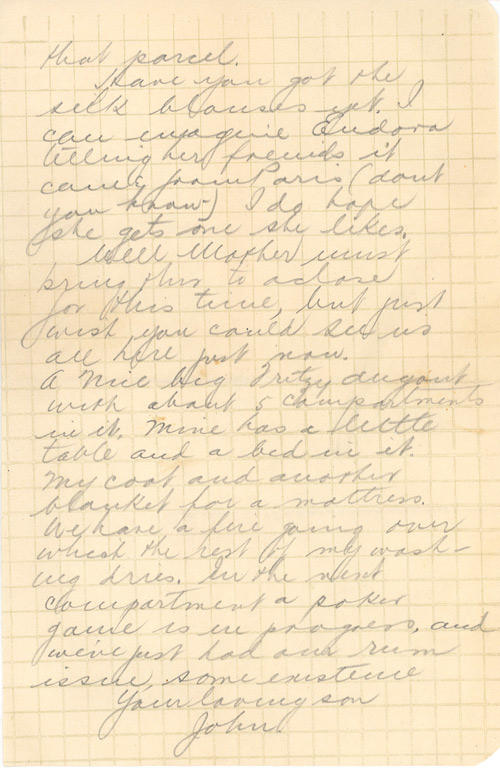 that parcel.
Have you got the
silk blouses yet. I
can imagine Eudora
telling her friends it
came from Paris (dont
you know-) I do hope
she gets one she likes.
Well Mother must
bring this to a close
for this time, but just
wish you could see us
all here just now.
A nice big Fritzy dugout
with about 5 compartments
in it. Mine has a little
table and a bed in it.
My coat and another
blanket for a mattress.
We have a fire going over
which the rest of my wash-
ing dries. In the next
compartment a poker
game is in progress, and
we've just had our rum
issue, some existence
Your loving son
John.